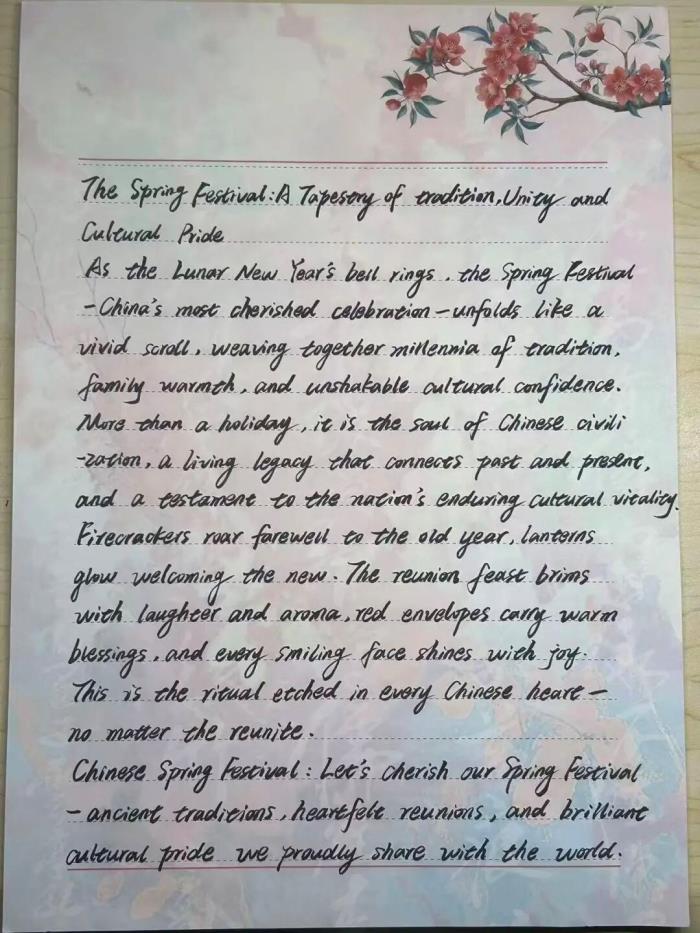 The Spring Festival: A Tapestry of tradition, Unity and
Cultural Pride
As the Lunar New Year's bell rings, the Spring Festival
-China's most cherished celebration-unfolds like a
vivid scroll, weaving together millennia of tradition,
family warmth, and unshakable cultural confidence.
More than a holiday, it is the soul of Chinese civili
-zation, a living legacy that connects past and present,
and a testament to the nation's enduring cultural vitality.
Firecrackers roar farewell to the old year, lanterns
glow welcoming the new. The reunion feast brims
with laughter and aroma, red envelopes carry warm
blessings, and every smiling face shines with joy.
This is the ritual etched in every Chinese heart—
no matter the reunite.
Chinese Spring Festival: Let's cherish our Spring Festival
- ancient traditions, heartfelt reunions, and brilliant
cultural pride we proudly share with the world.